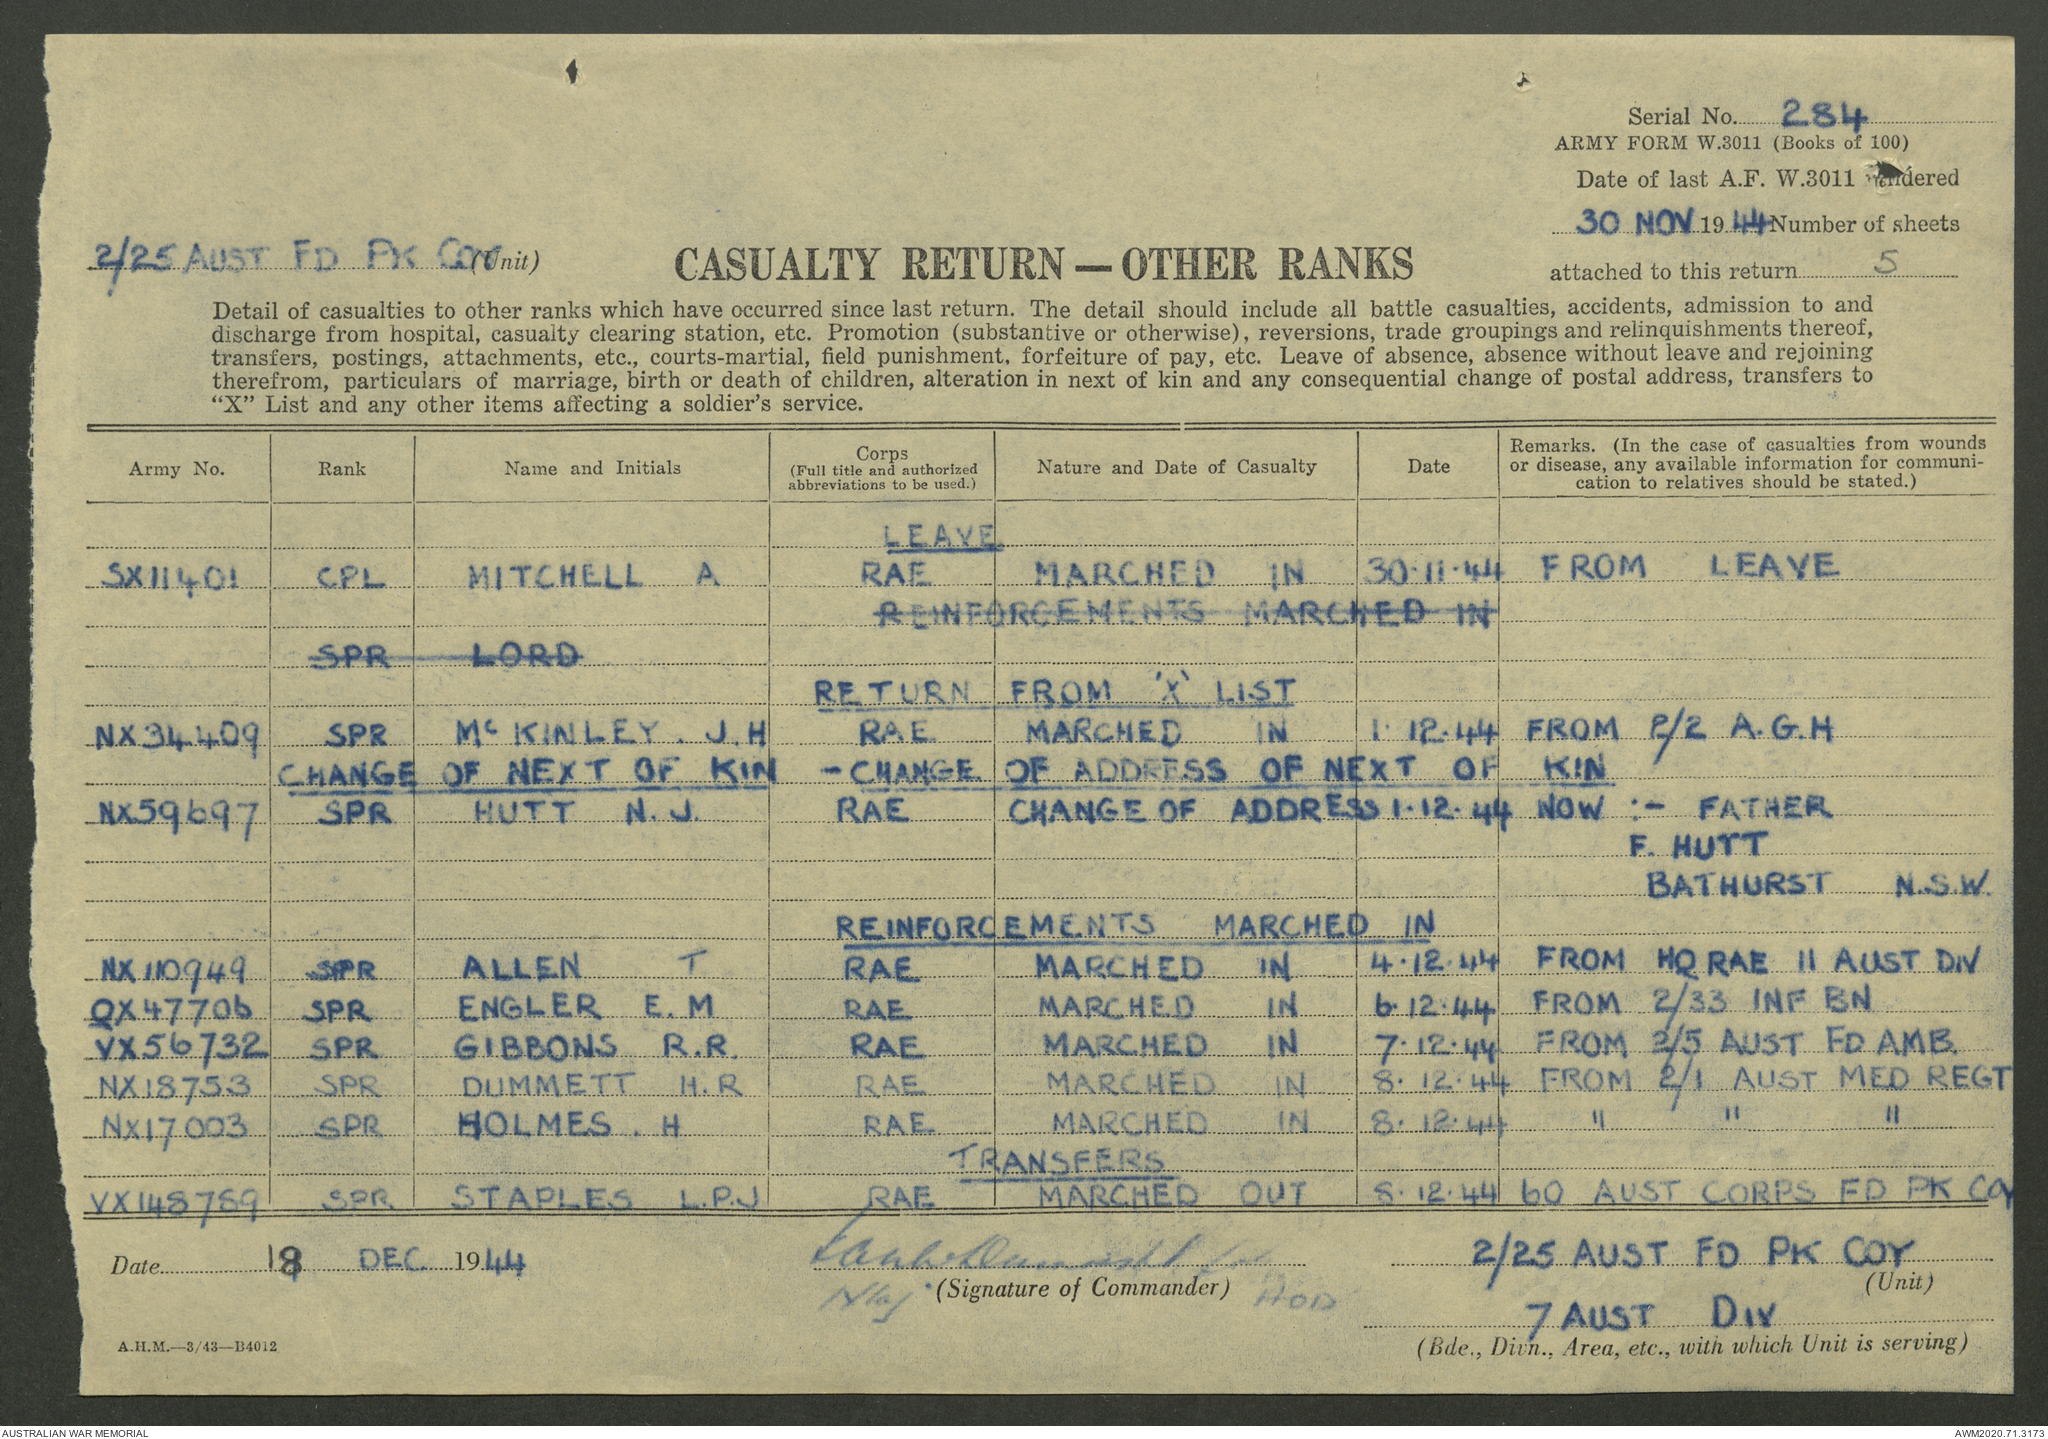 Serial No. 284
ARMY FORM W.3011 (Books of 100)
Date of last A.F. W.3011 rendered
30 NOV 1944 Number of sheets
attached to this return 5
2/25 AUST FD PK COY (Unit)
CASUALTY RETURN — OTHER RANKS
Detail of casualties to other ranks which have occurred since last return. The detail should include all battle casualties, accidents, admission to and
discharge from hospital, casualty clearing station, etc. Promotion (substantive or otherwise), reversions, trade groupings and relinquishments thereof,
transfers, postings, attachments, etc., courts-martial, field punishment, forfeiture of pay, etc. Leave of absence, absence without leave and rejoining
therefrom, particulars of marriage, birth or death of children, alteration in next of kin and any consequential change of postal address, transfers to
"X" List and any other items affecting a soldier's service.
Army No. Rank Name and Initials Corps (Full title and authorized abbreviations to be used.) Nature and Date of Casualty Date Remarks. (In the case of casualties from wounds or disease, any available information for communi-cation to relatives should be stated.)
LEAVE
SX11401 CPL MITCHELL A RAE MARCHED IN 30·11·44 FROM LEAVE
REINFORCEMENTS MARCHED IN
SPR LORD
RETURN FROM 'X' LIST
NX34409 SPR McKINLEY. J.H RAE MARCHED IN 1·12·44 FROM 2/2 A.G.H
CHANGE OF NEXT OF KIN - CHANGE OF ADDRESS OF NEXT OF KIN
NX59697 SPR HUTT N.J. RAE CHANGE OF ADDRESS 1·12·44 NOW :- FATHER
F. HUTT
BATHURST N.S.W.
REINFORCEMENTS MARCHED IN
NX110949 SPR ALLEN T RAE MARCHED IN 4·12·44 FROM HQ RAE 11 AUST DIV
QX47706 SPR ENGLER E.M RAE MARCHED IN 6·12·44 FROM 2/33 INF BN
VX56732 SPR GIBBONS R.R. RAE MARCHED IN 7·12·44 FROM 2/5 AUST FD AMB.
NX18753 SPR DUMMETT H.R RAE MARCHED IN 8·12·44 FROM 2/1 AUST MED REGT
NX17003 SPR HOLMES. H RAE MARCHED IN 8·12·44 " " "
TRANSFERS
VX148789 SPR STAPLES L.P.J RAE MARCHED OUT 8·12·44 60 AUST CORPS FD PK COY
Date 18 DEC. 1944
(Signature of Commander)
Maj
2/25 AUST FD PK COY
(Unit)
7 AUST DIV
(Bde., Divn., Area, etc., with which Unit is serving)
A.H.M.—3/43—B4012
AUSTRALIAN WAR MEMORIAL
AWM2020.71.3173